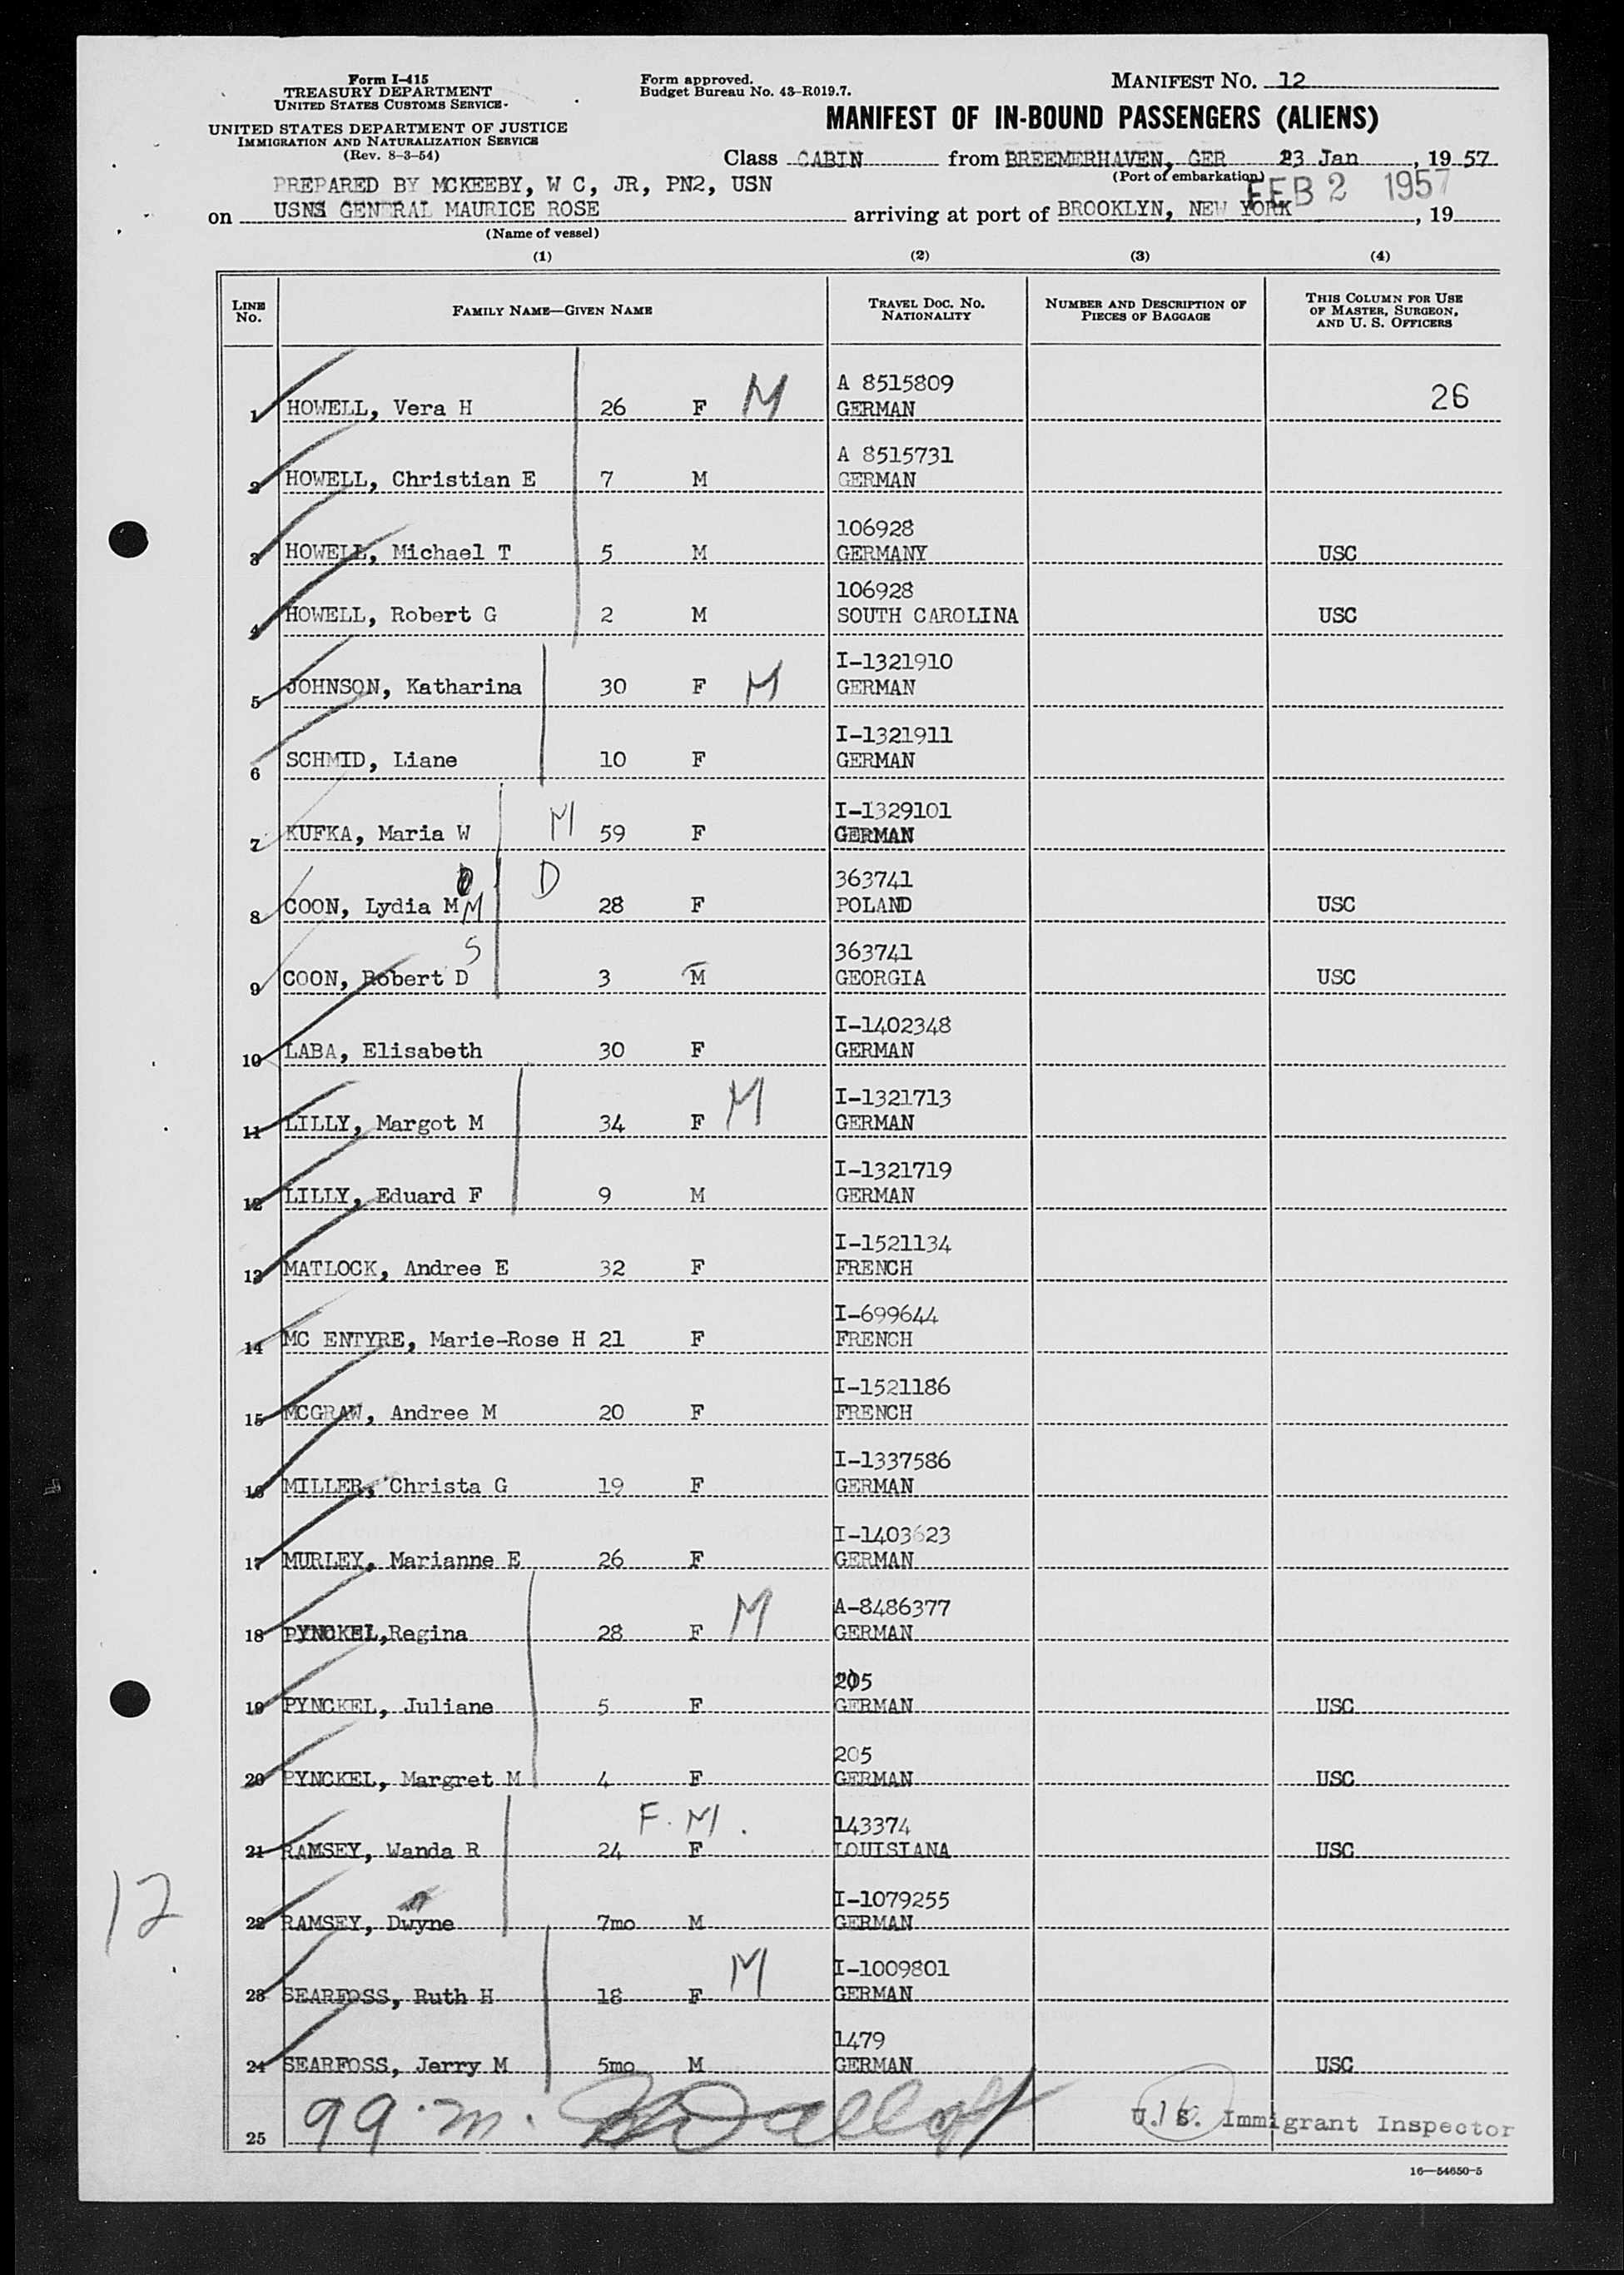 Form I-415
TREASURY DEPARTMENT
UNITED STATES CUSTOMS SERVICE
UNITED STATES DEPARTMENT OF JUSTICE
IMMIGRATION AND NATURALIZATION SERVICE
(Rev. 8-3-54)
Form approved.
Budget Bureau No. 43-R019.7.
MANIFEST NO. 12
MANIFEST OF IN-BOUND PASSENGERS (ALIENS)
Class CABIN from BREEMERHAVEN, GER 23 Jan, 19 57
(Port of embarkation)
PREPARED BY MCKEEBY, W C, JR, PN2, USN
FEB 2 1957
on USNS GENERAL MAURICE ROSE arriving at port of BROOKLYN, NEW YORK, 19
(Name of vessel)
(1) (2) (3) (4)
LINE NO. FAMILY NAME—GIVEN NAME TRAVEL DOC. NO. NATIONALITY NUMBER AND DESCRIPTION OF PIECES OF BAGGAGE THIS COLUMN FOR USE OF MASTER, SURGEON, AND U. S. OFFICERS
A 8515809
1 HOWELL, Vera H 26 F M GERMAN 26
A 8515731
2 HOWELL, Christian E 7 M GERMAN
106928
3 HOWELL, Michael T 5 M GERMANY USC
106928
4 HOWELL, Robert G 2 M SOUTH CAROLINA USC
I-1321910
5 JOHNSON, Katharina 30 F M GERMAN
I-1321911
6 SCHMID, Liane 10 F GERMAN
I-1329101
7 KUFKA, Maria W M 59 F GERMAN
D 363741
8 COON, Lydia M M 28 F POLAND USC
S 363741
9 COON, Robert D 3 M GEORGIA USC
I-1402348
10 LABA, Elisabeth 30 F GERMAN
I-1321713
11 LILLY, Margot M 34 F M GERMAN
I-1321719
12 LILLY, Eduard F 9 M GERMAN
I-1521134
13 MATLOCK, Andree E 32 F FRENCH
I-699644
14 MC ENTYRE, Marie-Rose H 21 F FRENCH
I-1521186
15 MCGRAW, Andree M 20 F FRENCH
I-1337586
16 MILLER, Christa G 19 F GERMAN
I-1403623
17 MURLEY, Marianne E 26 F GERMAN
A-8486377
18 PYNCKEL, Regina 28 F M GERMAN
205
19 PYNCKEL, Juliane 5 F GERMAN USC
205
20 PYNCKEL, Margret M 4 F GERMAN USC
F. M. 143374
21 RAMSEY, Wanda R 24 F LOUISIANA USC
I-1079255
22 RAMSEY, Dwyne 7mo M GERMAN
12
I-1009801
23 SEARFOSS, Ruth H 18 F M GERMAN
1479
24 SEARFOSS, Jerry M 5mo M GERMAN USC
99.m.
U. S. Immigrant Inspector
25
16—54650-5